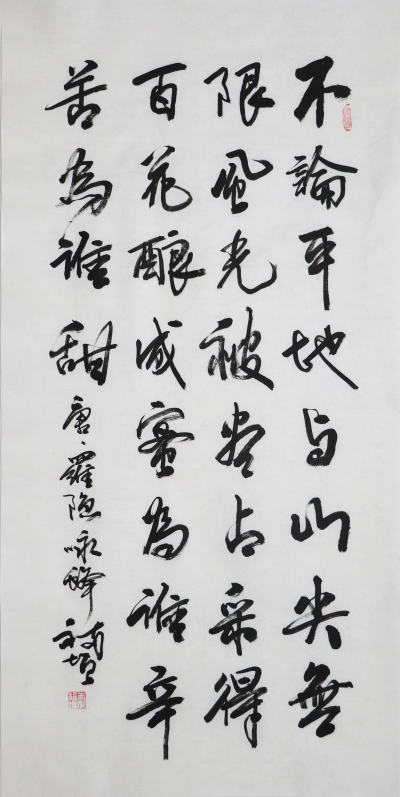 不論平地与山尖無
限風光被盡占采得
百花酿成蜜為誰辛
苦為誰甜
唐羅隐咏蜂